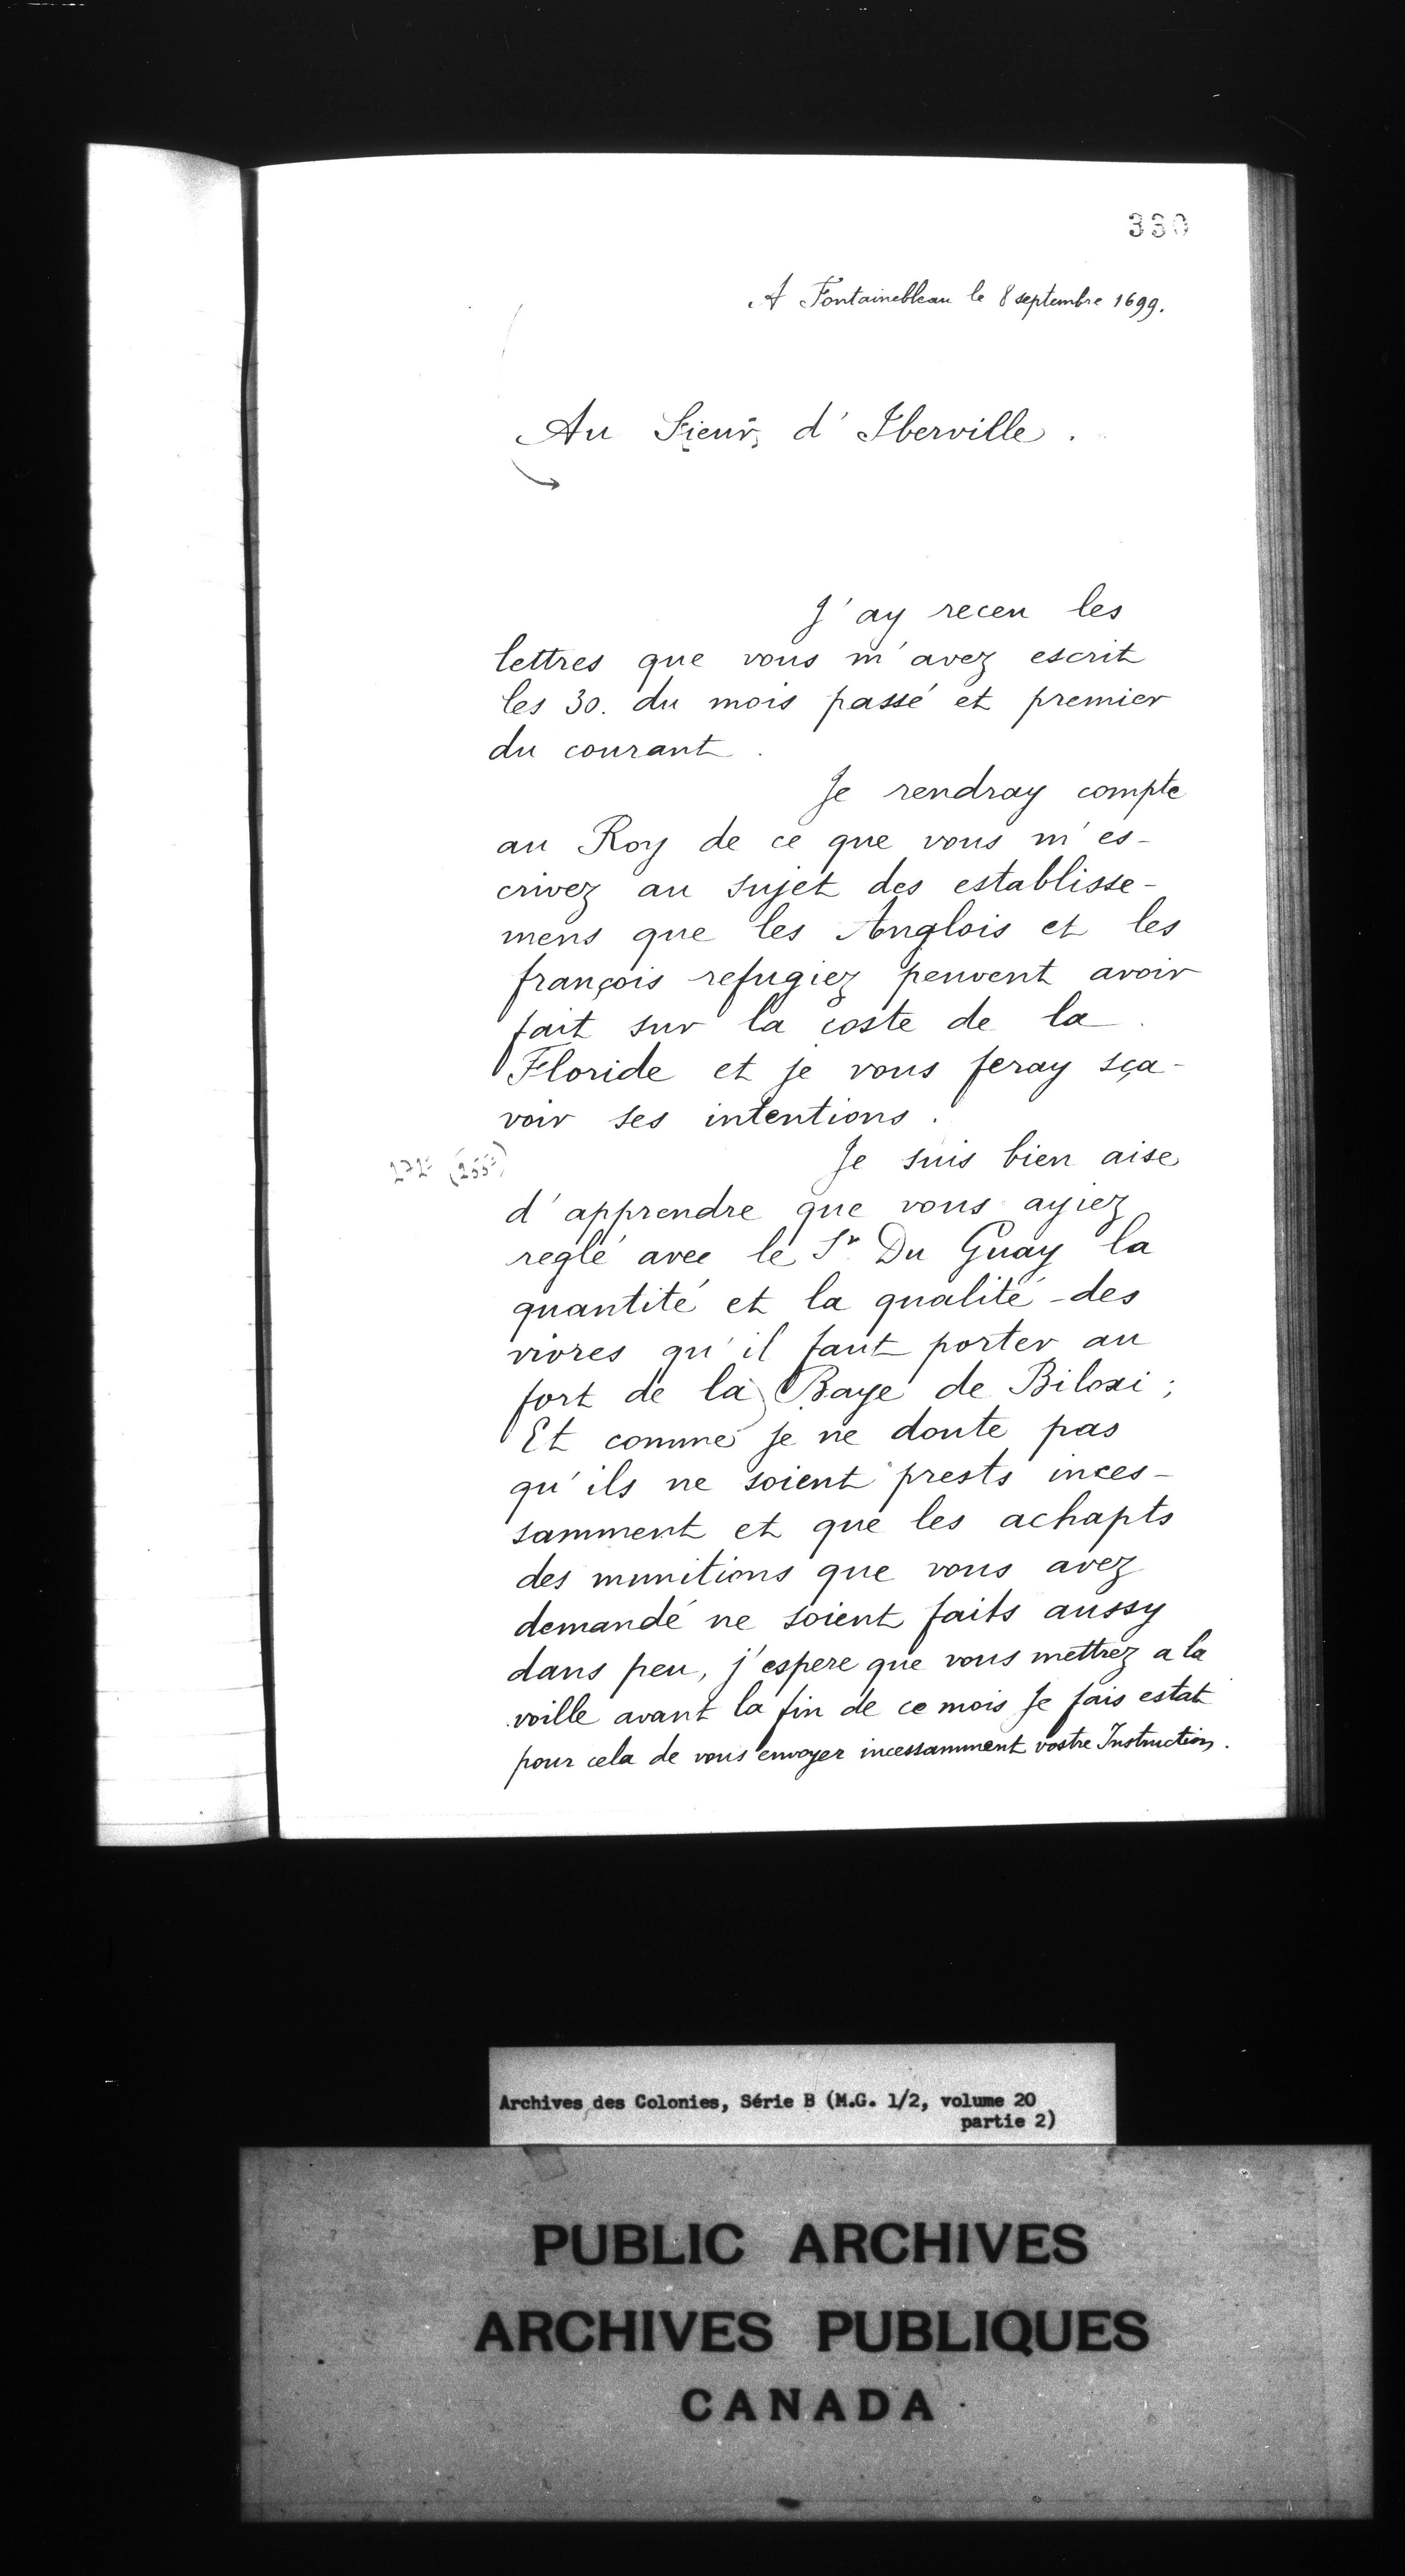 330
A Fontainebleau le 8 septembre 1699.
Au Sieur d'Iberville.
J'ay receu les
lettres que vous m'avez escrit
les 30. du mois passé et premier
du courant.
Je rendray compte
au Roy de ce que vous m'es-
crivez au sujet des establisse-
mens que les Anglois et les
françois refugiez peuvent avoir
fait sur la coste de la
Floride et je vous feray sça-
voir ses intentions.
Je suis bien aise
d'apprendre que vous ayiez
reglé avec le Sr. Du Guay la
quantité et la qualité des
vivres qu'il faut porter au
fort de la Baye de Biloxi;
Et comme je ne doute pas
qu'ils ne soient prests inces-
samment et que les achapts
des munitions que vous avez
demandé ne soient faits aussy
dans peu, j'espere que vous mettrez a la
voille avant la fin de ce mois Je fais estat
pour cela de vous envoyer incessamment vostre Instruction.
Archives des Colonies, Série B (M.G. 1/2, volume 20
partie 2)
PUBLIC ARCHIVES
ARCHIVES PUBLIQUES
CANADA